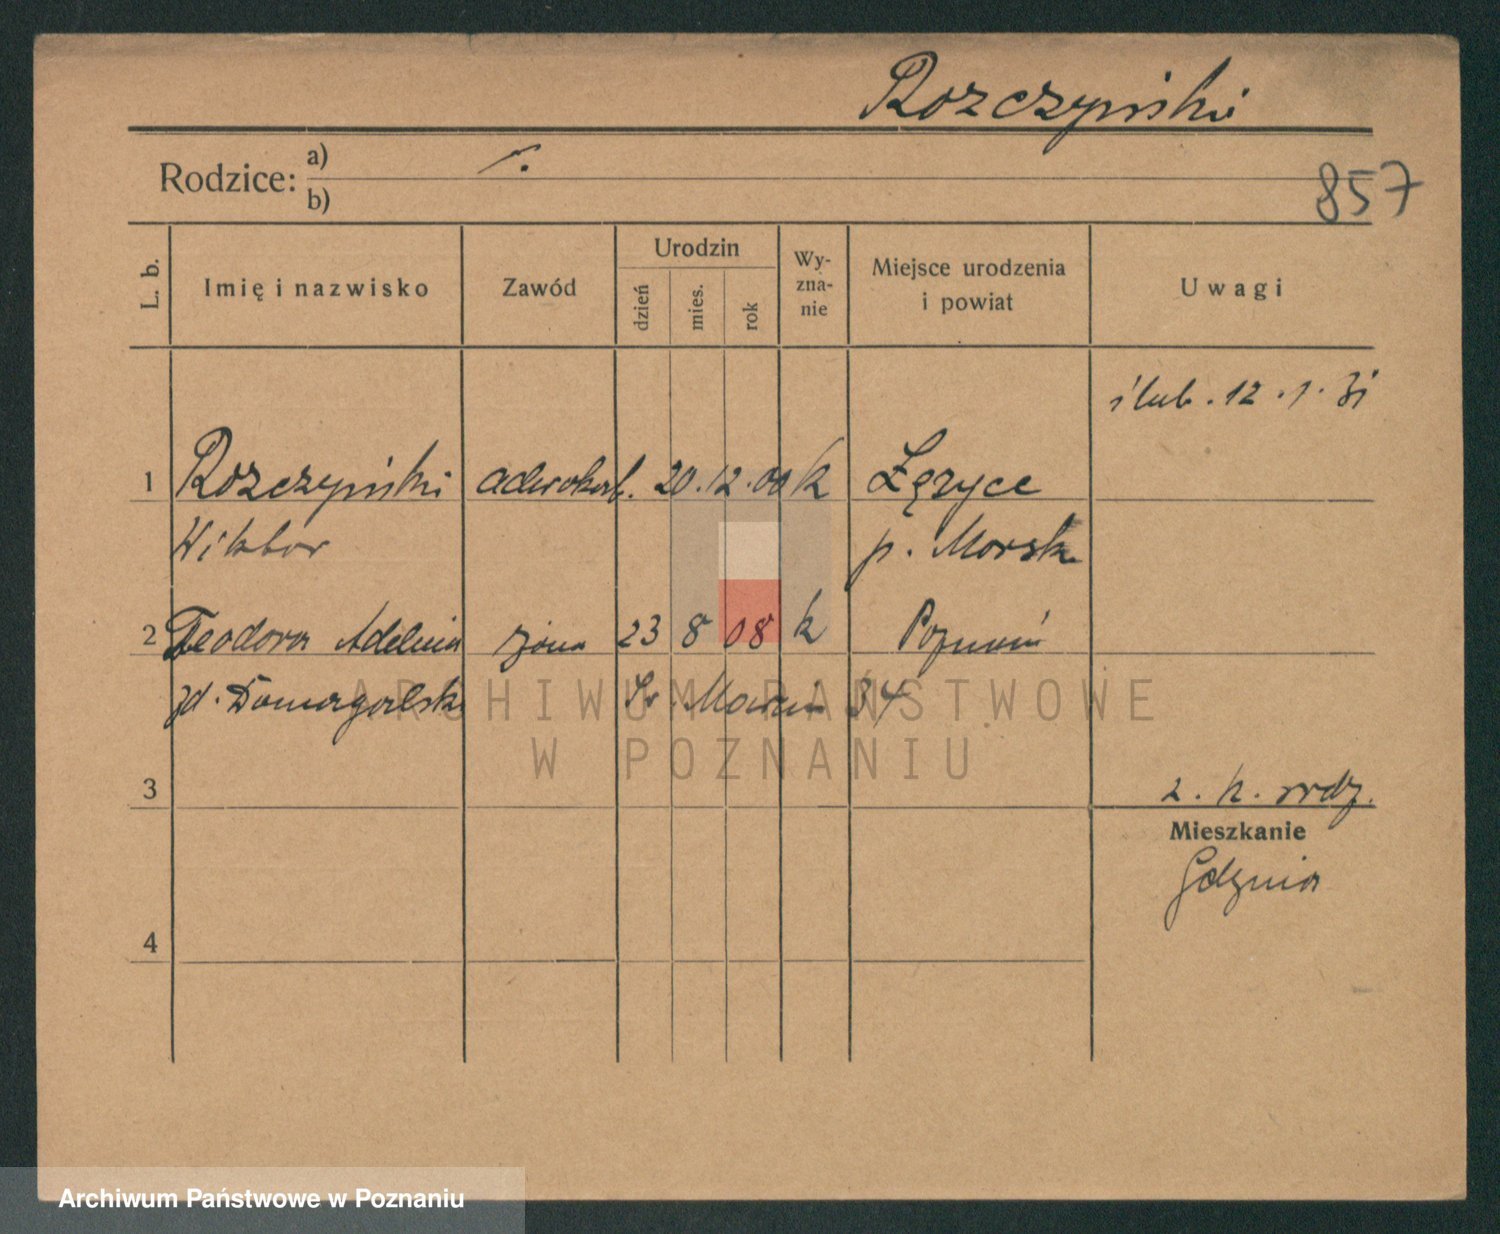 Rozczyński
Rodzice: a)
b)
857
L. b.
Imię i nazwisko
Zawód
Urodzin
dzień
mies.
rok
Wy-
zna-
nie
Miejsce urodzenia
i powiat
Uwagi
ślub. 12.1.31
1 Rozczyński adwokat. 20.12.00 k Łężyce
Wiktor p. Morsk.
2 Teodora Adelina żona 23 8 08 k Poznań
zd. Domagalska Św. Marcin 34
ARCHIWUM PAŃSTWOWE
W POZNANIU
3
2. k.
Mieszkanie
Gdynia
4
Archiwum Państwowe w Poznaniu